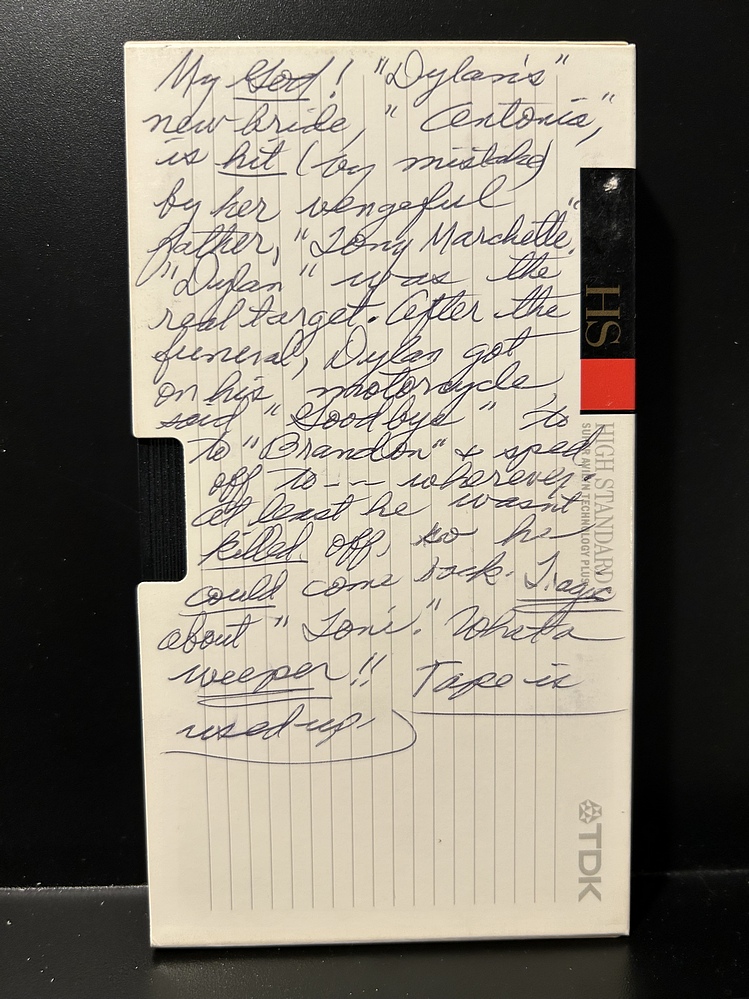 My God! "Dylan's"
new bride, "Antonia",
is hit (by mistake)
by her vengeful
father, "Tony Marchette."
"Dylan" was the
real target. After the
funeral, Dylan got
on his motorcycle
said "Goodbye" to
to "Brandon" & sped
off to--- wherever.
At least he wasn't
killed off, so he
could come back. Tragic
about "Toni". What a
weeper!! Tape is
used up!
HS
HIGH STANDARD
SUPER AVILYN TECHNOLOGY PLUS
TDK